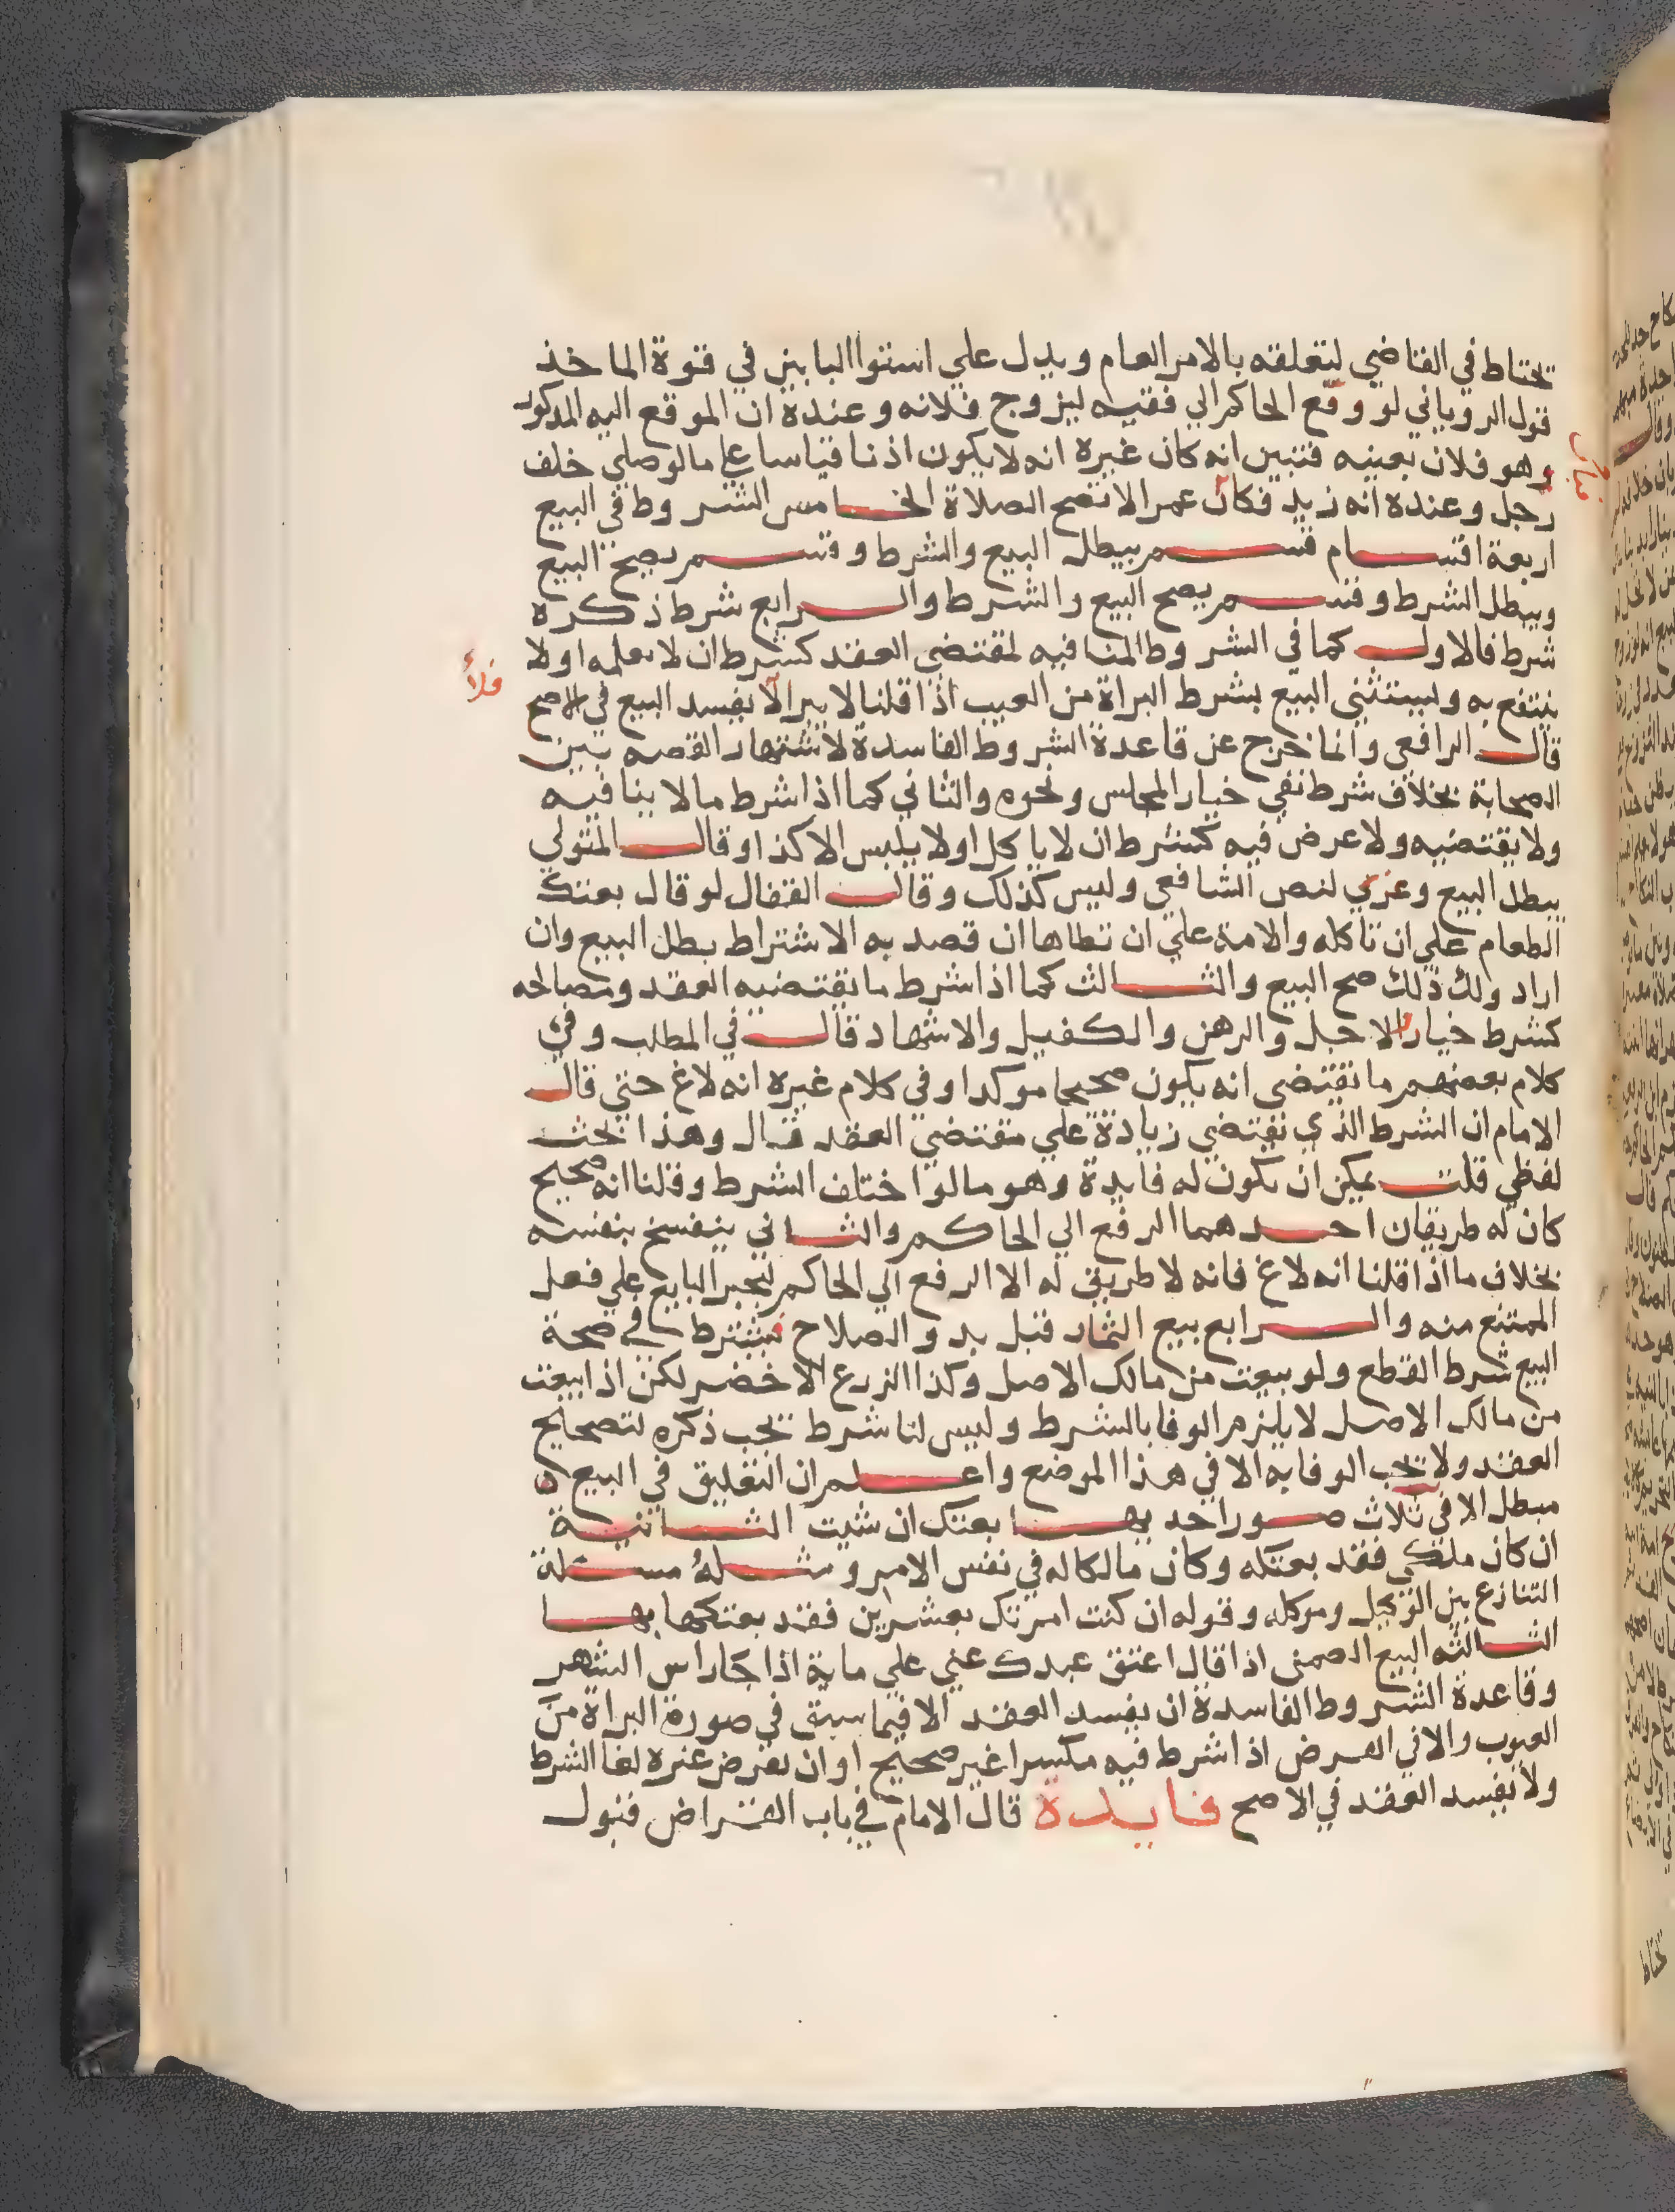 تحتاط في القاضي لتعلقه بالامر العام ويدل علي استوا البابين في قوة الماخذ
قول الروياني لو وقع الحاكم الي فقيه ليزوج فلانه وعنده ان الموقع اليه المدكور
وهو فلان بعينه فتبين انه كان غيره انه لا يكون اذنا قياسا علي ما لو صلي خلف
رجل وعنده انه زيد فكان عمرا لا تصح الصلاة الخامس الشروط في البيع
اربعة اقسام قسم يبطل البيع والشرط وقسم يصح البيع
ويبطل الشرط وقسم يصح البيع والشرط والرابع شرط ذكره
شرط فالاول كما في الشروط المنافيه لمقتضي العقد كشرط ان لا يعلمه او لا
ينتفع به ويستثني البيع بشرط البراة من العيب اذا قلنا لا يبرا لا يفسد البيع في الاصح
قال الرافعي وانما خرج عن قاعدة الشروط الفاسدة لاشتهار القصه بين
الصحابة بخلاف شرط نفي خيار المجلس ونحوه والثاني كما اذا شرط ما لا ينافيه
ولا يقتضيه ولا عرض فيه كشرط ان لا ياكل او لا يلبس الا كذا وقال المتولي
يبطل البيع وعزي لنص الشافعي وليس كذلك وقال القفال لو قال بعتك
الطعام علي ان تاكله والامة علي ان تطاها ان قصد به الاشتراط بطل البيع وان
اراد ولك ذلك صح البيع والثالث كما اذا شرط ما يقتضيه العقد ومصالحه
كشرط خيار الاجل والرهن والكفيل والاشهاد قال في المطلب وفي
كلام بعضهم ما يقتضي انه يكون صحيحا موكدا وفي كلام غيره انه لاغ حتي قال
الامام ان الشرط الذي يقتضي زيادة علي مقتضي العقد قال وهذا بحث
لفظي قلت يمكن ان يكون له فايدة وهو ما لو اختلف الشرط وقلنا انه صحيح
كان له طريقان احدهما الرفع الي الحاكم والثاني ينفسخ بنفسه
بخلاف ما اذا قلنا انه لاغ فانه لا طريق له الا الرفع الي الحاكم ليجبر البايع علي فعل
الممتنع منه والرابع بيع الثمار قبل بدو الصلاح يشترط في صحة
البيع شرط القطع ولو بيعت من مالك الاصل وكذا الزرع الاخضر لكن اذا بيعت
من مالك الاصل لا يلزم الوفا بالشرط وليس لنا شرط يجب ذكره لتصحيح
العقد ولا يجب الوفا به الا في هذا الموضع واعلم ان التعليق في البيع ه
مبطل الا في ثلاث صور احديها بعتك ان شيت الثانية
ان كان ملكي فقد بعتكه وكان مالكا له في نفس الامر ومثله مسئلة
التنازع بين الوكيل وموكله وقوله ان كنت امرتك بعشرين فقد بعتكها بها
الثالثه البيع الضمني اذا قال اعتق عبدك عني علي ماية اذا جا راس الشهر
وقاعدة الشروط الفاسدة ان يفسد العقد الا فيما سبق في صورة البراة من
العيوب والا في القرض اذا شرط فيه مكسرا غير صحيح او ان يقرض غيره لغا الشرط
ولا يفسد العقد في الاصح فايدة قال الامام في باب القراض قبول